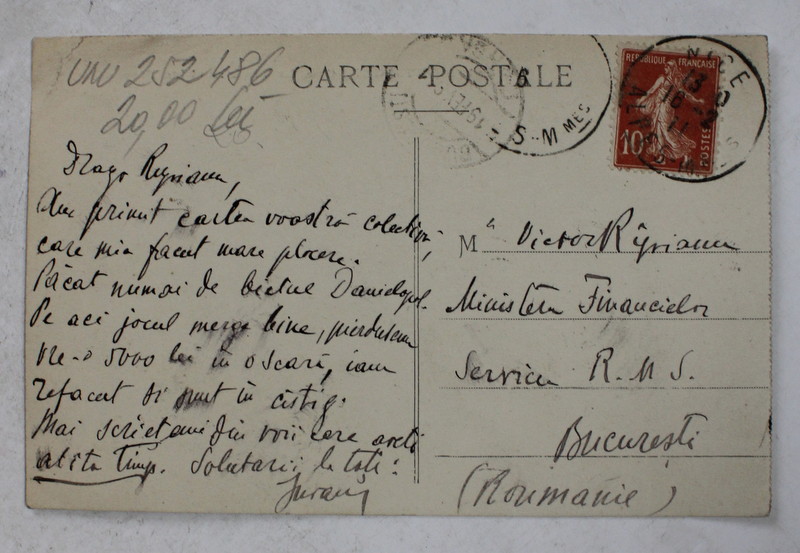 UNU 252.486
20,00 Lei
CARTE POSTALE
RÉPUBLIQUE FRANÇAISE
10
POSTES
NICE
ALPES-MMES
Drago Ryșianu,
Am primit cartea voastră colectivă,
care mia facut mare plăcere.
Păcat numai de bietul Danielopol.
Pe aci jocul merge bine, pierdusem
vre-o 5000 lei în o seară, iam
refacut și sunt în câștig.
Mai scriețimi din voii care aveti
atita timp. Salutari la toti:
Mr Victor Ryșianu
Ministerul Financielor
Serviciu R.M.S.
București
(Roumanie)